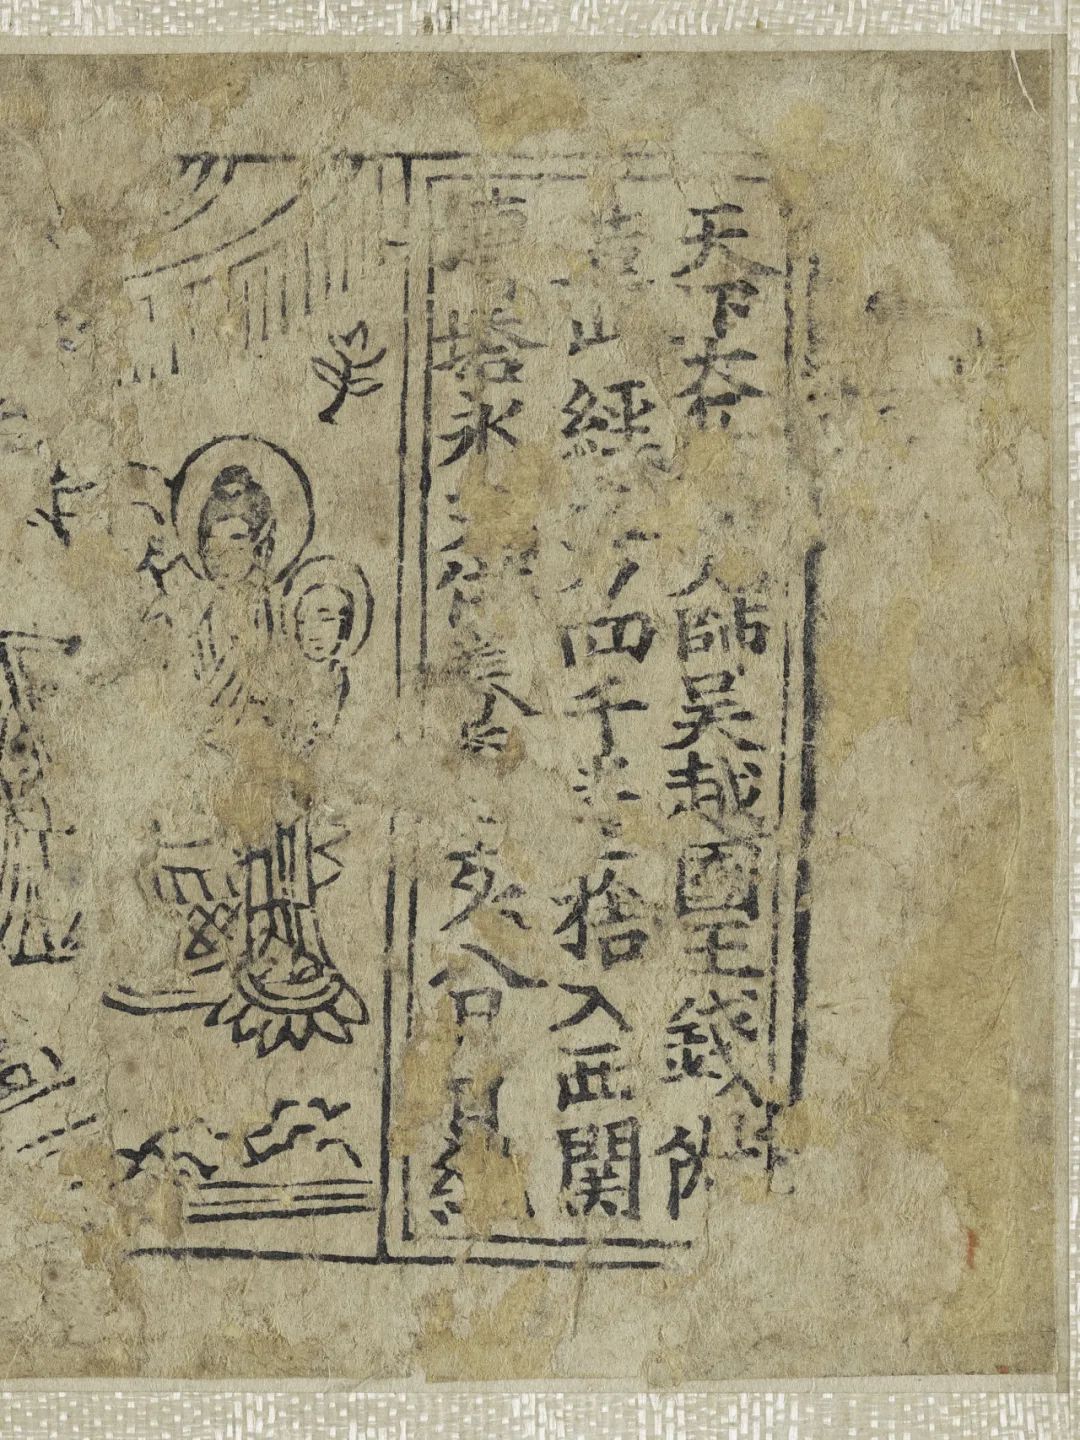 天下兵大帥吳越國王錢俶
造此經万四千卷捨入西關
塼塔永充供養亥八月日紀